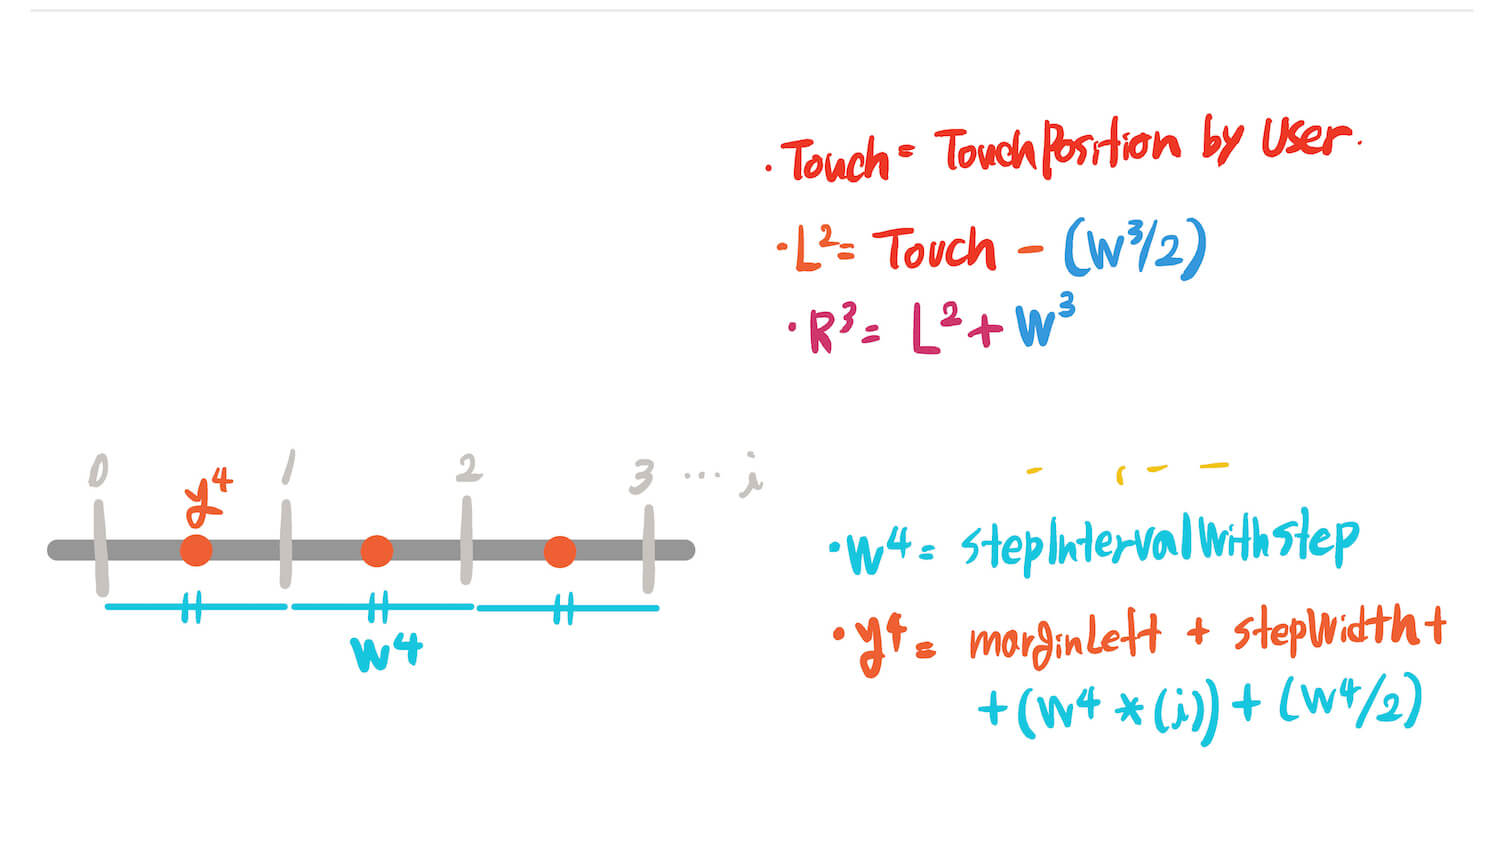 · Touch = TouchPosition by User.
· L² = Touch - (W³/2)
· R³ = L² + W³
0 1 2 3 ... i
y⁴
W⁴
· W⁴ = stepIntervalWithStep
· y⁴ = marginLeft + stepWidth +
+ (W⁴ * (i)) + (W⁴/2)